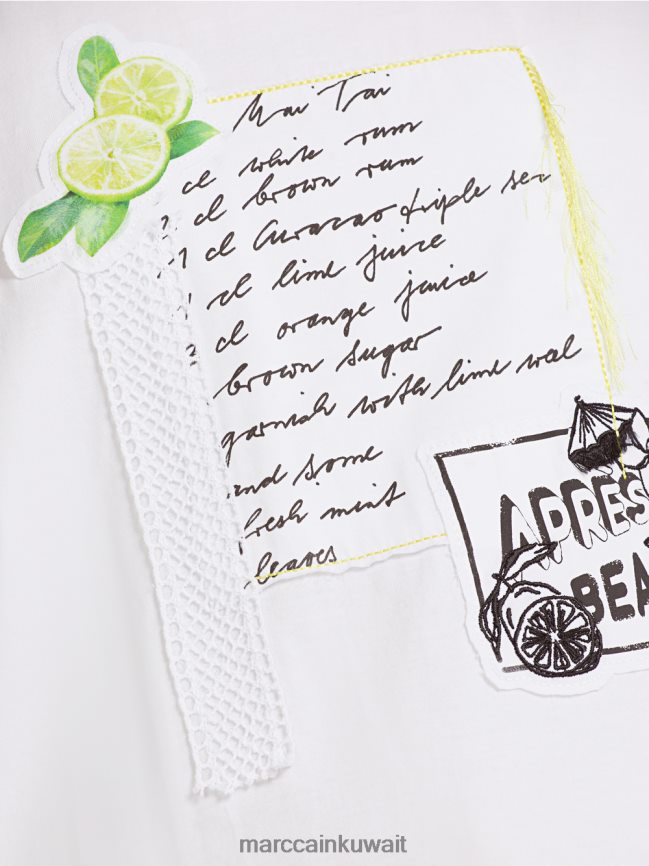 Mai Tai
cl white rum
cl brown rum
1 cl Curacao triple sec
cl lime juice
cl orange juice
brown sugar
garnish with lime
and some
fresh mint
leaves
APRES
BEA
marccainkuwait